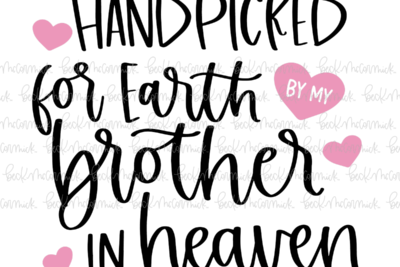 HANDPICKED
for Earth BY MY
brother
IN heaven